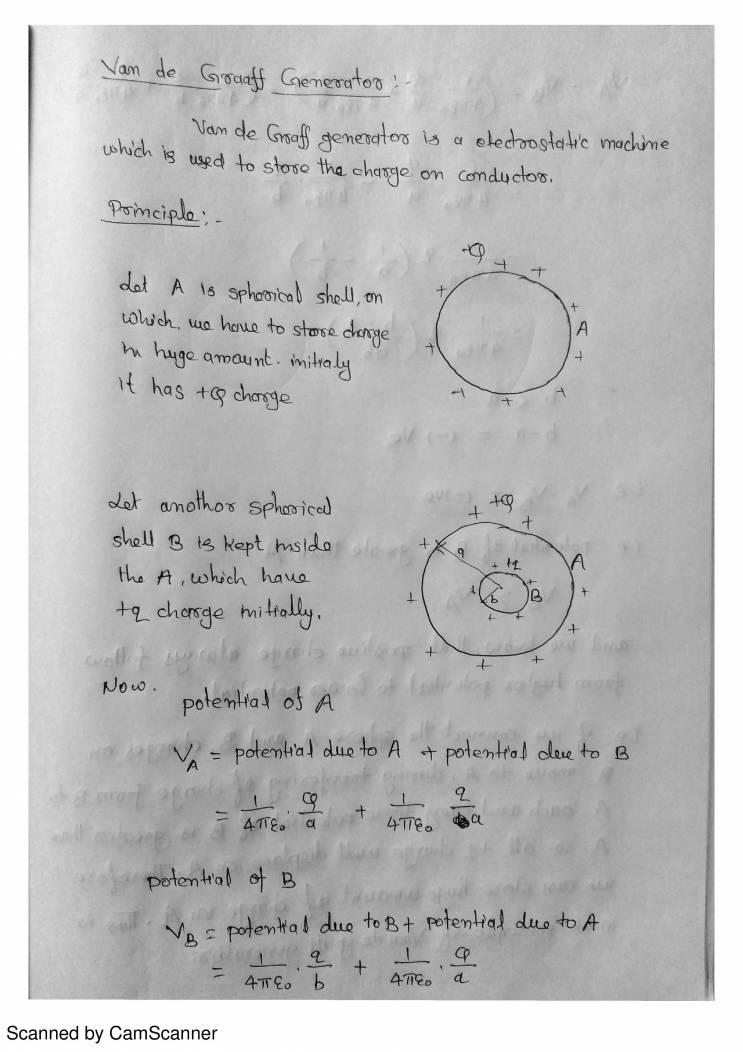 Van de Graaff Generator :-
Van de Graff generator is a electrostatic machine
which is used to store the charge on conductor.
Principle :-
Let A is spherical shell, on
which, we have to store charge
in huge amount. initialy
it has +Q charge
Q
+ + + + + + + + +
A
Let another spherical
shell B is kept inside
the A, which have
+q charge initially.
+Q
+ + + + + + + + +
A
a
+q
b
B
Now.
potential of A
V_A = potential due to A + potential due to B
= 1/4πε₀ · Q/a + 1/4πε₀ q/a
potential of B
V_B = potential due to B + potential due to A
= 1/4πε₀ · q/b + 1/4πε₀ · Q/a
Scanned by CamScanner